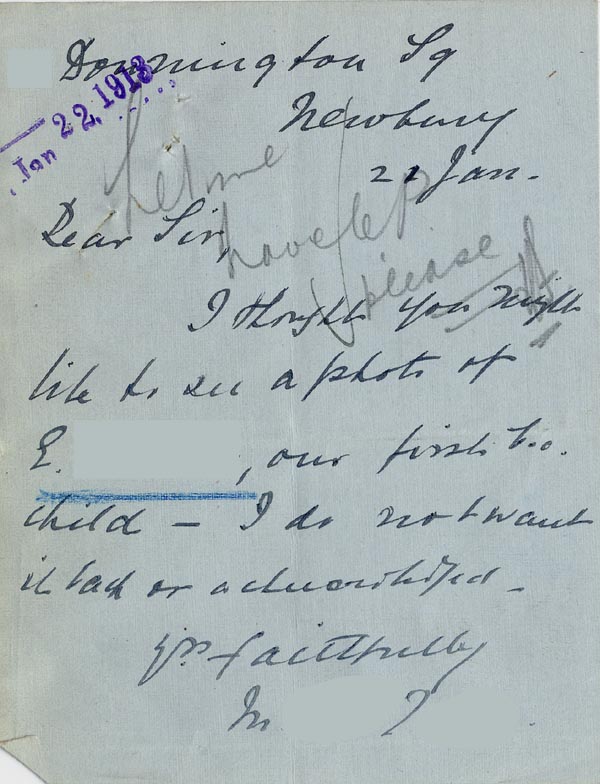 Donnington Sq
Newbury
Jan 22, 1913
21 Jan.
Let me
have let
please
Dear Sir,
I thought you might
like to see a photo of
E. , our first b.o.
child – I do not want
it back or acknowledged –
Yrs faithfully
M.